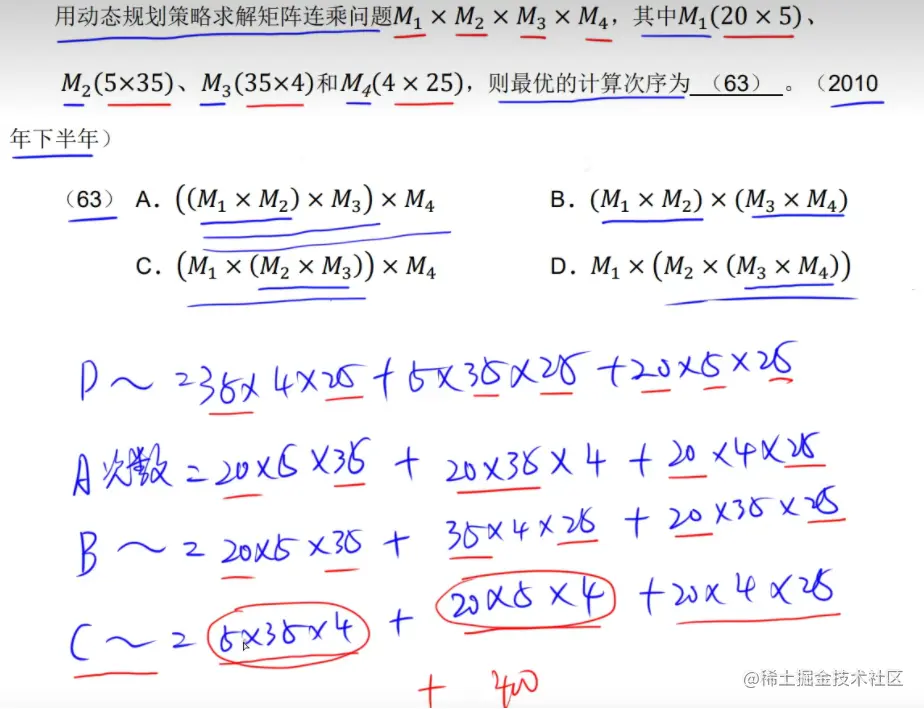 用动态规划策略求解矩阵连乘问题M₁ × M₂ × M₃ × M₄，其中M₁(20 × 5)、
M₂(5×35)、M₃(35×4)和M₄(4 × 25)，则最优的计算次序为 （63） 。（2010
年下半年）
（63） A. ((M₁ × M₂) × M₃) × M₄ B. (M₁ × M₂) × (M₃ × M₄)
C. (M₁ × (M₂ × M₃)) × M₄ D. M₁ × (M₂ × (M₃ × M₄))
D ~ = 35×4×25 + 5×35×25 + 20×5×25
A次数 = 20×5×35 + 20×35×4 + 20×4×25
B ~ = 20×5×35 + 35×4×25 + 20×35×25
C ~ = 5×35×4 + 20×5×4 + 20×4×25
+ 400
@稀土掘金技术社区